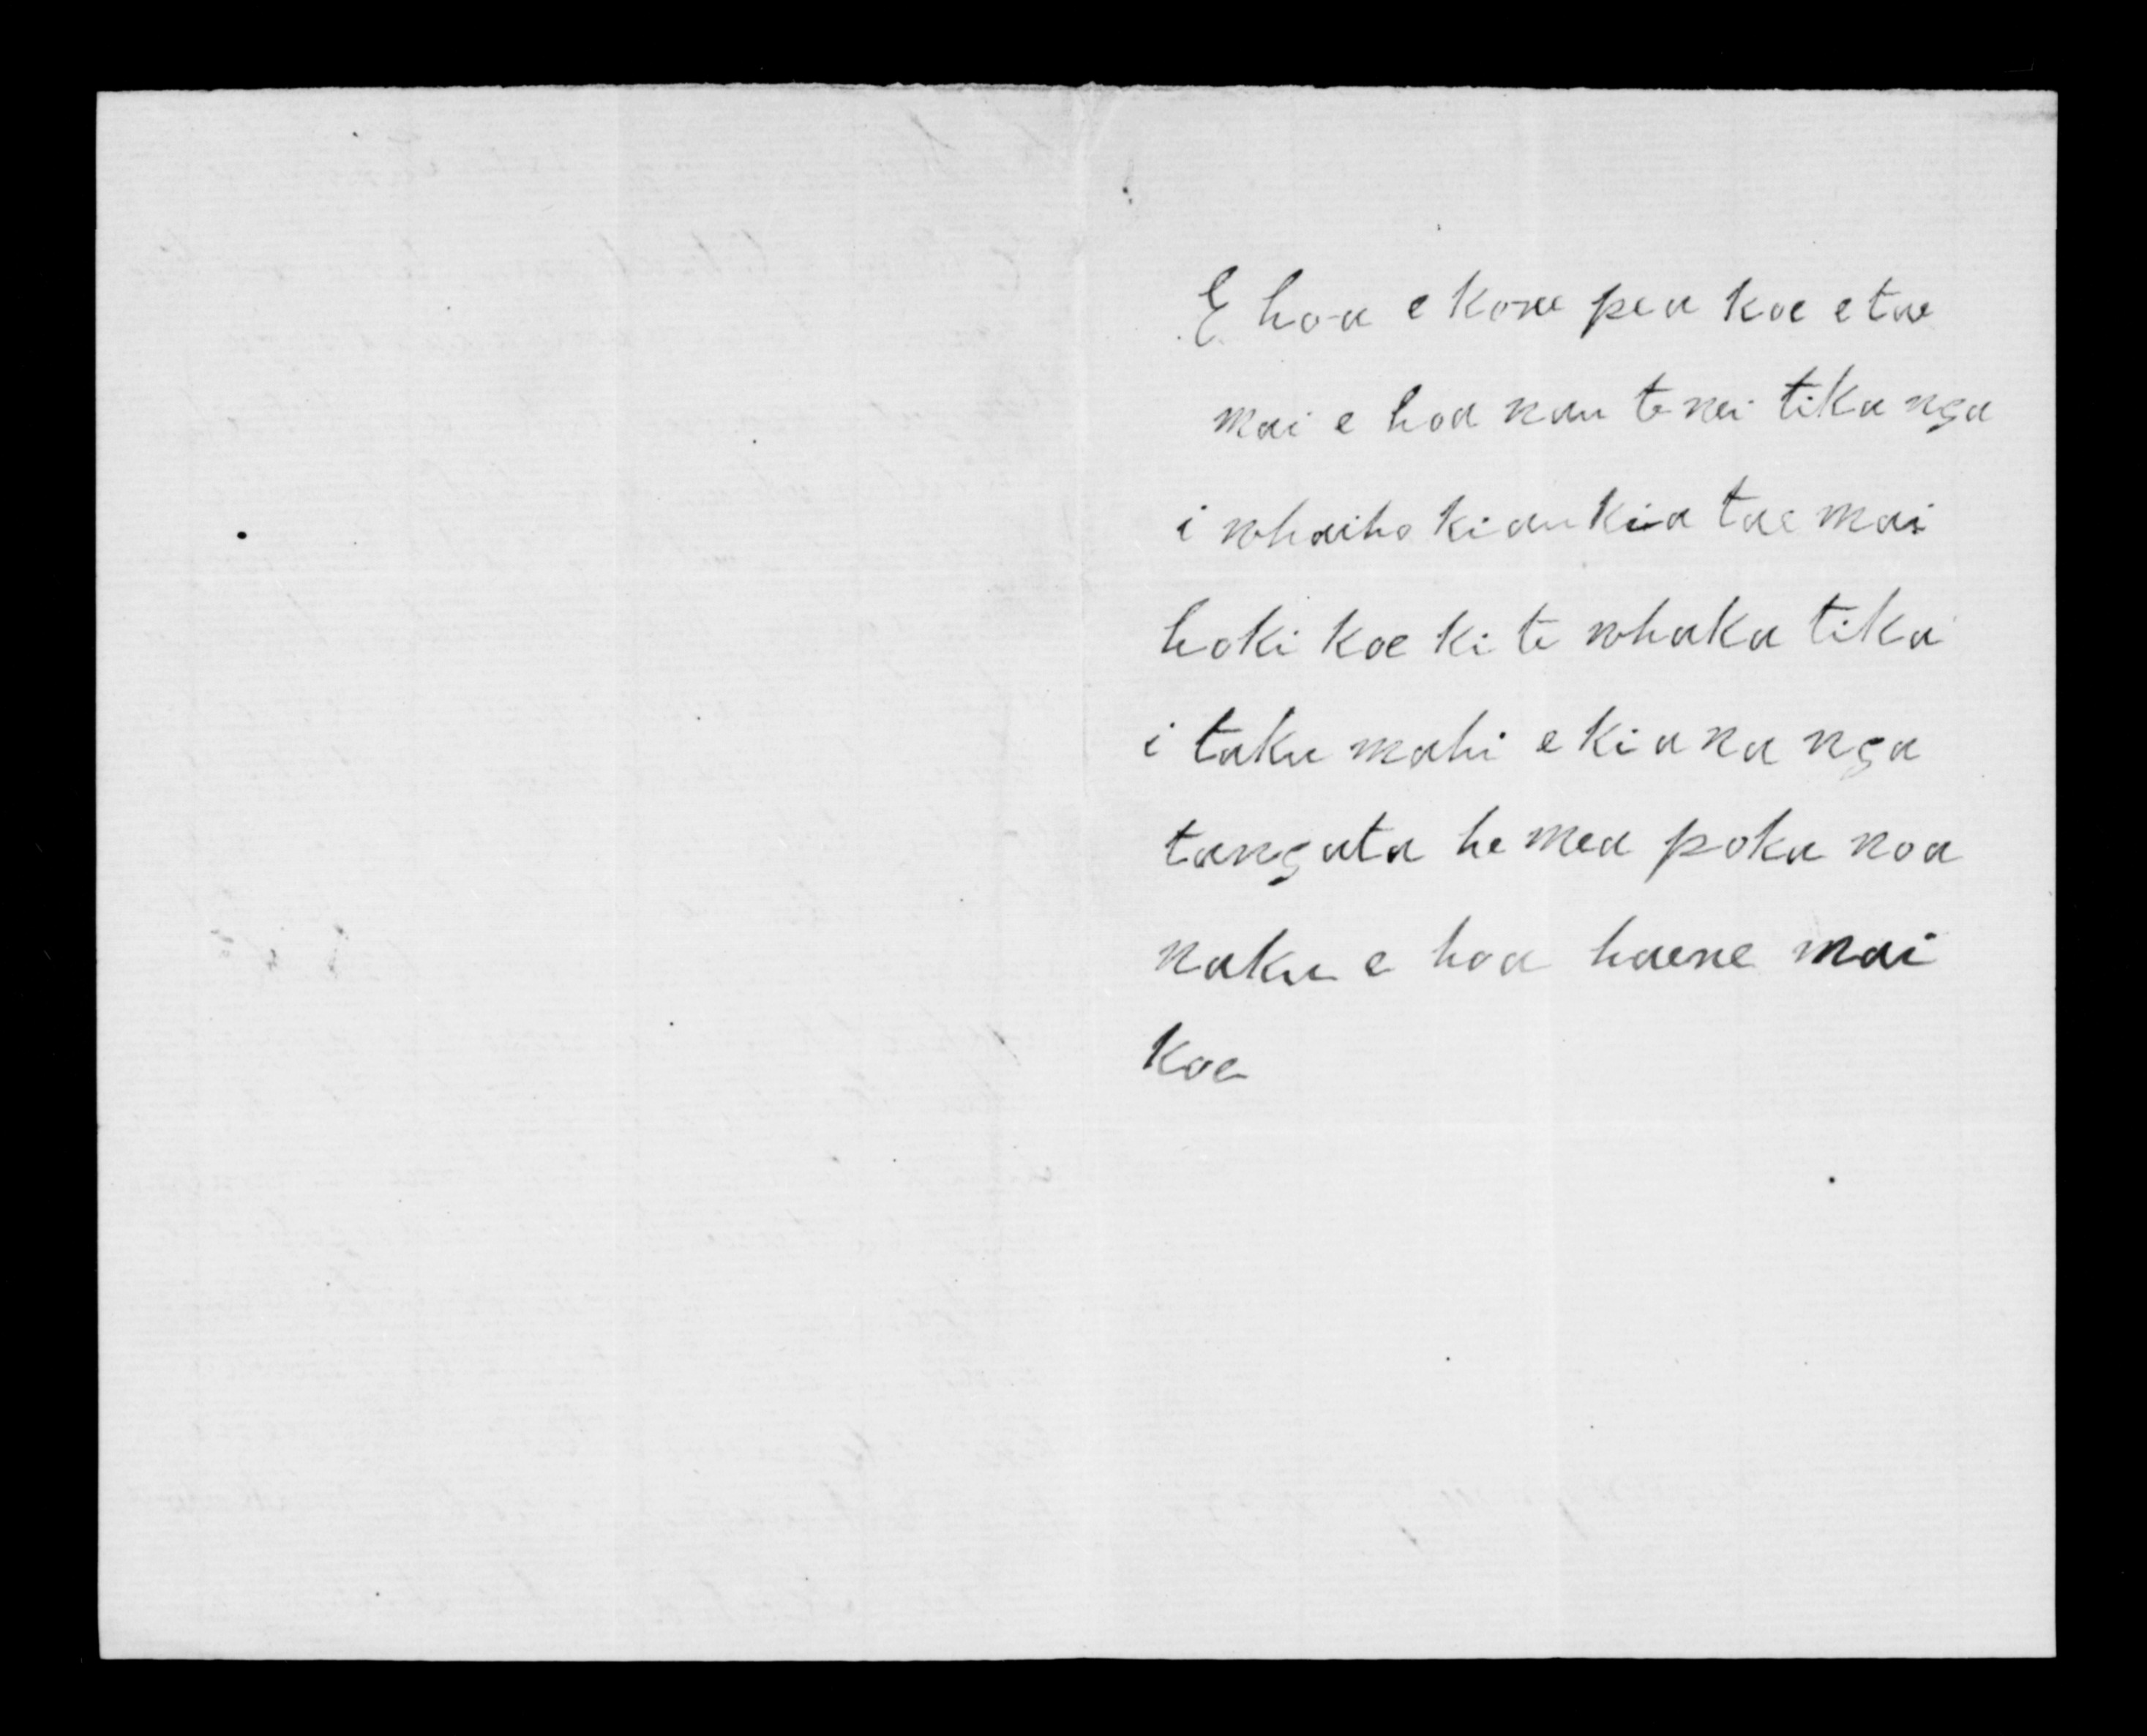 E hoa e kore pea koe e tae
mai e hoa nau tenei tikanga
i whaiho ki au kia tae mai
hoki koe ki te whaka tika
i taku mahi e kia na nga
tangata he mea poka noa
naku e hoa haere mai
koe